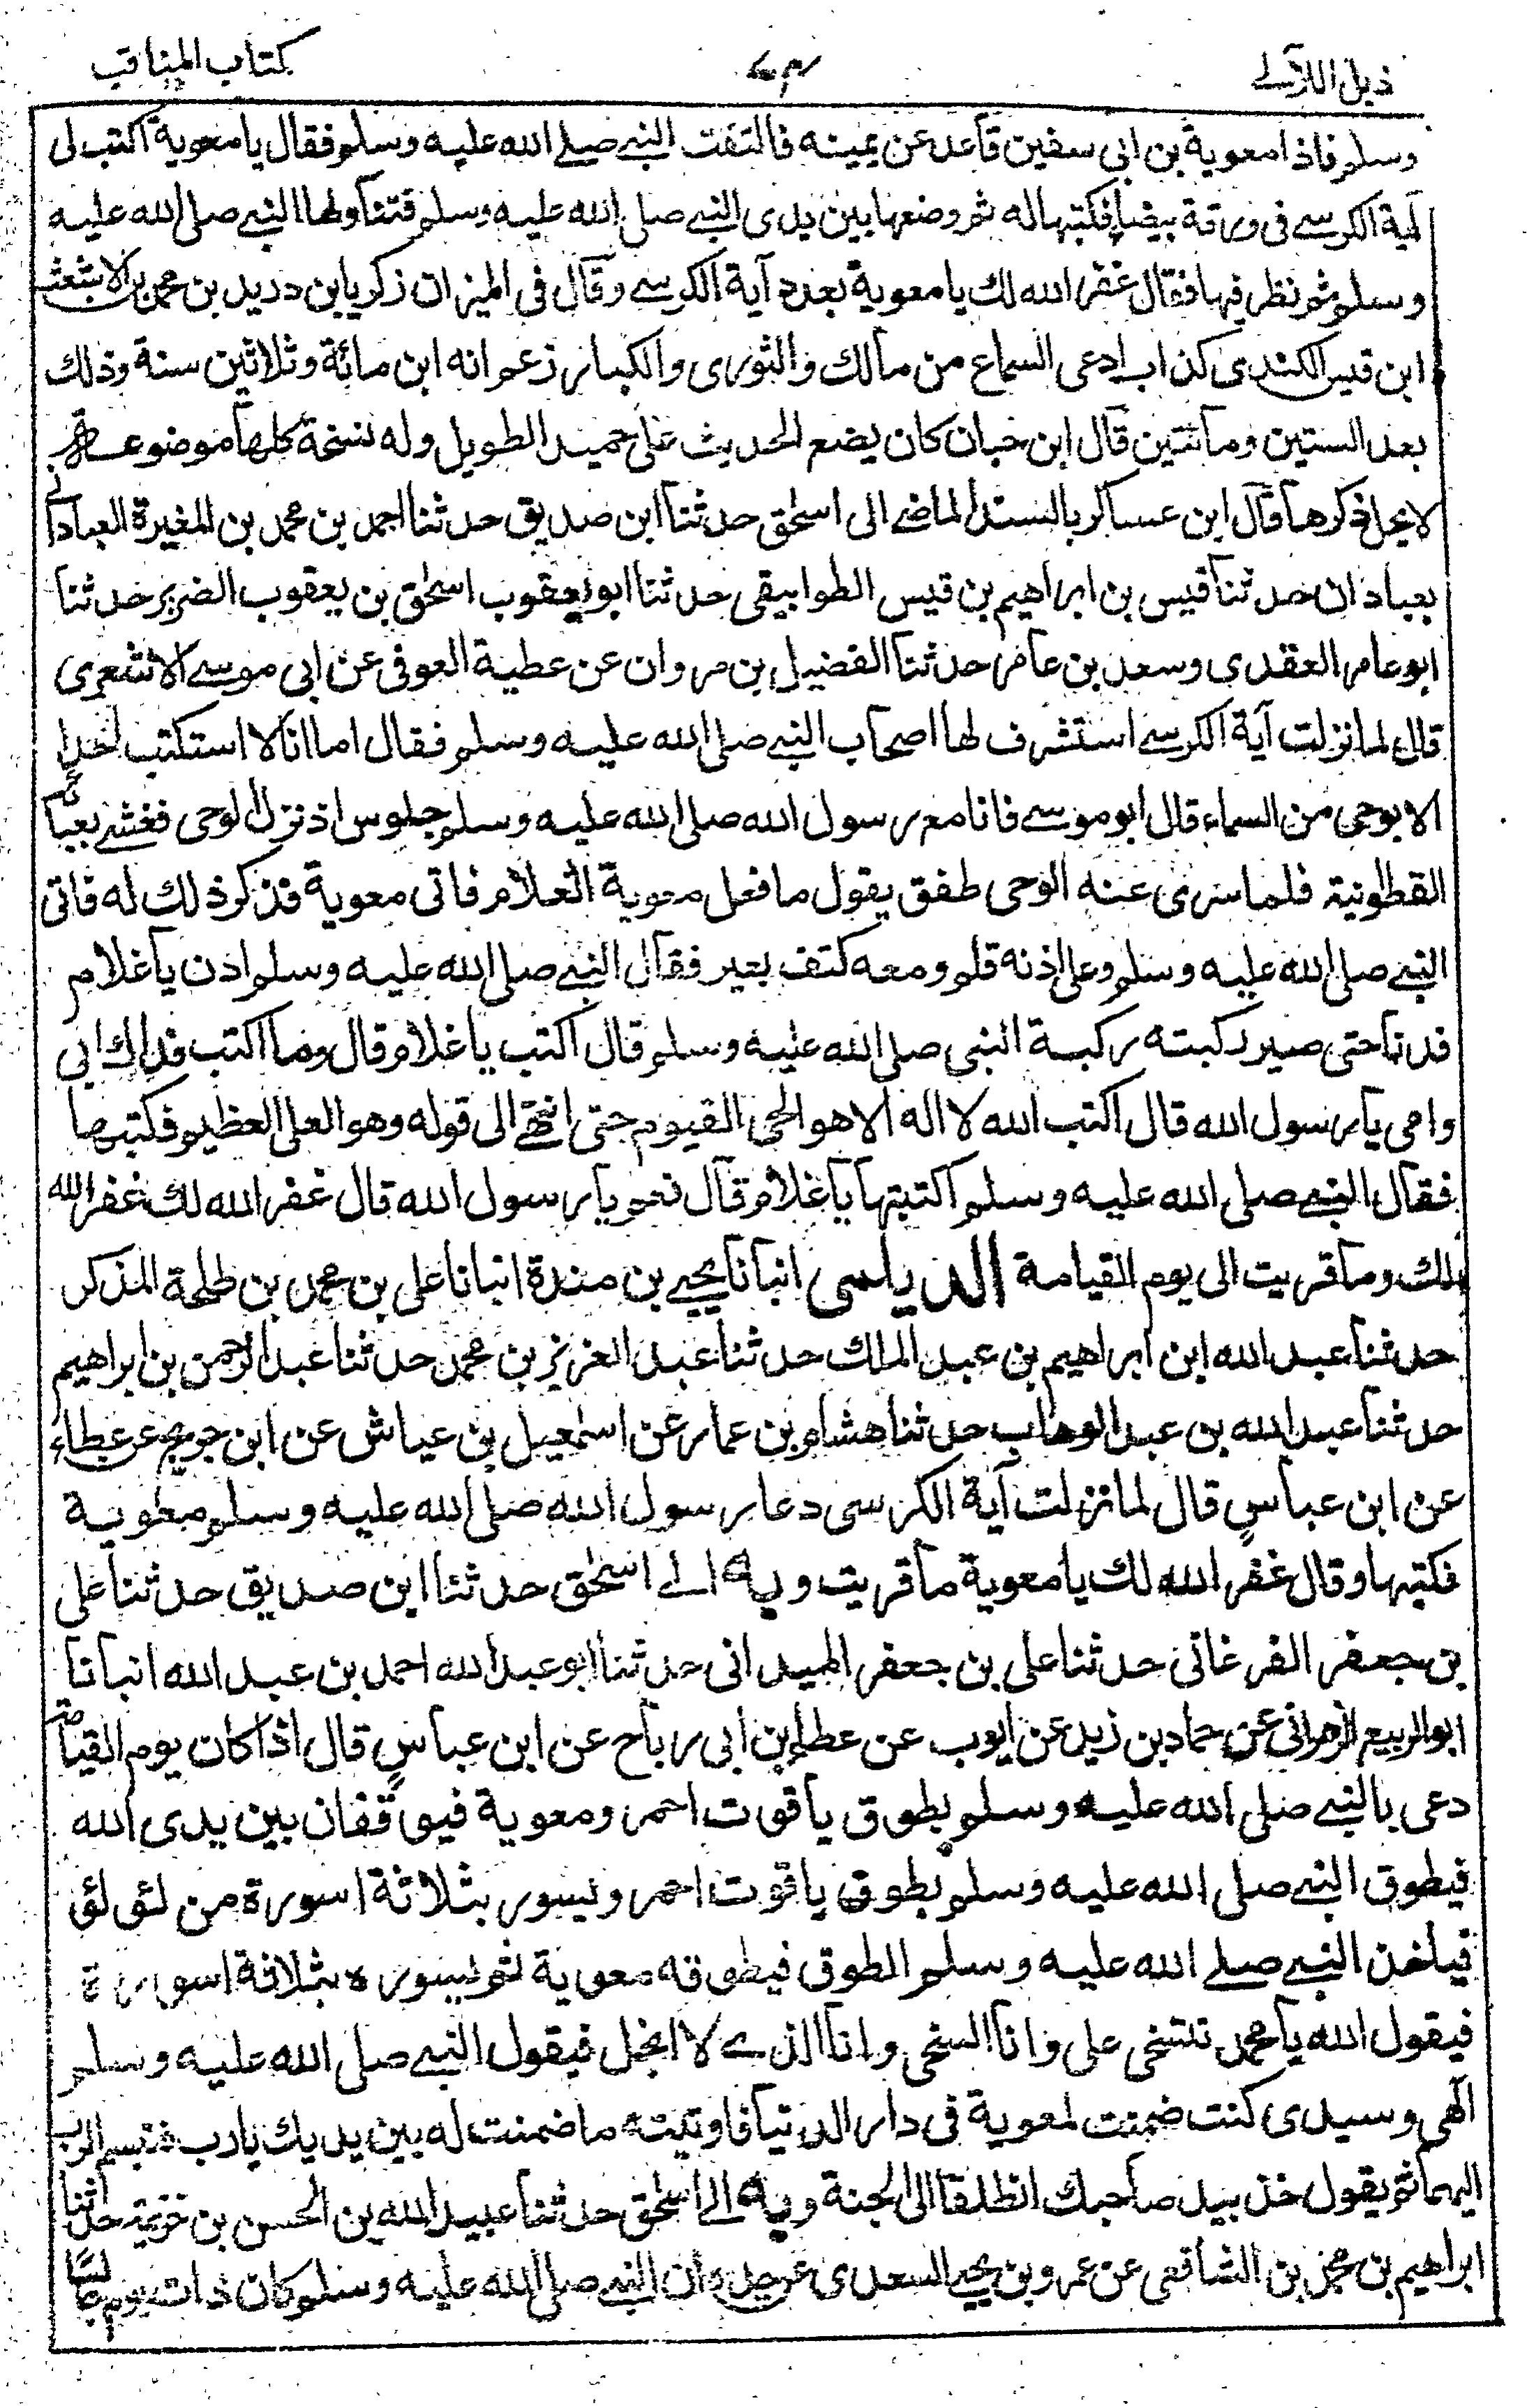 ذيل اللآلے ٧٤ كتاب المناقب
وسلم فاذا معوية بن ابى سفين قاعد عن يمينه فالتفت النبے صلے الله عليه وسلم فقال يا معوية اكتب لى
آية الكرسے فى ورقة بيضا فكتبها له ثم وضعها بين يدى النبے صلى الله عليه وسلم فتناولها النبے صلى الله عليه
وسلم ثم نظر فيها فقال غفر الله لك يا معوية بعدد آية الكرسے وقال فى الميزان زكريا بن دريد بن محمد بن الاشعث
ابن قيس الكندى كذاب ادعى السماع من مالك والثورى والكبار زعم انه ابن مائة وثلاثين سنة وذلك
بعد الستين ومائتين قال ابن حبان كان يضع الحديث على حميد الطويل وله نسخة كلها موضوعة
لا يحل ذكرها قال ابن عساكر بالسند الماضے الى اسحٰق حدثنا ابن صديق حدثنا احمد بن محمد بن المغيرة العبادانے
بعبادان حدثنا قيس بن ابراهيم بن قيس الطوابيقى حدثنا ابو يعقوب اسحٰق بن يعقوب الضرير حدثنا
ابو عامر العقدى وسعد بن عامر حدثنا الفضيل بن مروان عن عطية العوفى عن ابى موسے الاشعرى
قال لما نزلت آية الكرسے استشرف لها اصحاب النبے صلى الله عليه وسلم فقال اما انا لا استكتب احدا
الا بوحى من السماء قال ابو موسے فانا مع رسول الله صلى الله عليه وسلم جلوس اذ نزل الوحى فغشے بعبائه
القطوانية فلما سرى عنه الوحى طفق يقول ما فعل معوية الغلام فاتى معوية فذكر ذلك له فاتى
النبے صلى الله عليه وسلم وعلى اذنه قلم ومعه كتف بعير فقال النبے صلى الله عليه وسلم ادن يا غلام
فدنا حتى صير ركبته ركبة النبى صلى الله عليه وسلم قال اكتب يا غلام قال وما اكتب فداك ابى
وامى يا رسول الله قال اكتب الله لا اله الا هو الحى القيوم حتى انتهے الى قوله وهو العلى العظيم فكتبها
فقال النبے صلى الله عليه وسلم اكتبتها يا غلام قال نعم يا رسول الله قال غفر الله لك غفر الله
لك وما قريت الى يوم القيامة الديلمى انبانا يحيے بن مندة انبانا على بن محمد بن طلحة المذكر
حدثنا عبد الله ابن ابراهيم بن عبد الملك حدثنا عبد العزيز بن محمد حدثنا عبد الرحمن بن ابراهيم
حدثنا عبد الله بن عبد الوهاب حدثنا هشام بن عمار عن اسمعيل بن عياش عن ابن جريج عن عطاء
عن ابن عباسٍ قال لما نزلت آية الكرسى دعا رسول الله صلى الله عليه وسلم معوية
فكتبها وقال غفر الله لك يا معوية ما قريت وبه الے اسحٰق حدثنا ابن صديق حدثنا على
بن جعفر الفرغانى حدثنا على بن جعفر الميدانى حدثنا ابو عبد الله احمد بن عبد الله انبانا
ابو الربيع الزهرانى عن حماد بن زيد عن ايوب عن عطاء بن ابى رباح عن ابن عباسٍ قال اذا كان يوم القيامة
دعى بالنبے صلى الله عليه وسلم بطوق ياقوت احمر ومعوية فيوقفان بين يدى الله
فيطوق النبے صلى الله عليه وسلم بطوق ياقوت احمر ويسور بثلاثة اسورة من لؤلؤ
فياخذ النبے صلے الله عليه وسلم الطوق فيطوقه معوية ثم يسوره بثلاثة اسورة
فيقول الله يا محمد تتسخى على وانا السخى وانا الذے لا ابخل فيقول النبے صلى الله عليه وسلم
الٓهى وسيدى كنت ضمنت لمعوية فى دار الدنيا فاوتيته ما ضمنت له بين يديك يا رب فتبسم الرب
اليهما ثم يقول خذ بيد صاحبك انطلقا الى الجنة وبه الے اسحٰق حدثنا عبيد الله بن الحسن بن خزيمة حدثنا
ابراهيم بن محمد بن الشافعى عن عمرو بن يحيے السعدى عن جده ان النبے صلى الله عليه وسلم كان ذات يوم